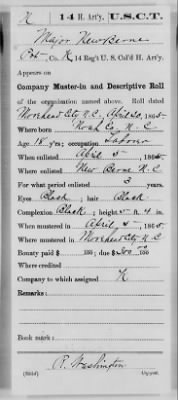 K 14 H. Art'y. U.S.C.T.
Major New Berne
Pvt, Co. K, 14 Reg't U. S. Col'd H. Art'y.
Appears on
Company Muster-in and Descriptive Roll
of the organization named above. Roll dated
Morehead City N.C. April 20, 1865
Where born N.C.
Age 18 y'rs; occupation Laborer
When enlisted April 5, 1865
Where enlisted New Berne N.C.
For what period enlisted 3 years.
Eyes Black; hair Black
Complexion Black; height 5 ft. 4 in.
When mustered in April 5, 1865
Where mustered in Morehead City N.C.
Bounty paid $ 100; due $ 300 100
Where credited
Company to which assigned K
Remarks:
Book mark:
R. Washington
Copyist.